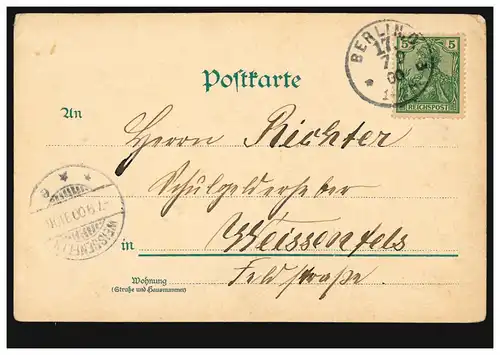 BERLIN
17.
7 9
00
5 5
REICHSPOST
Postkarte
An
Herrn Richter
Schulgelderheber
in Weissenfels
Feldstraße.
WEISSENFELS
Wohnung
(Straße und Hausnummer)